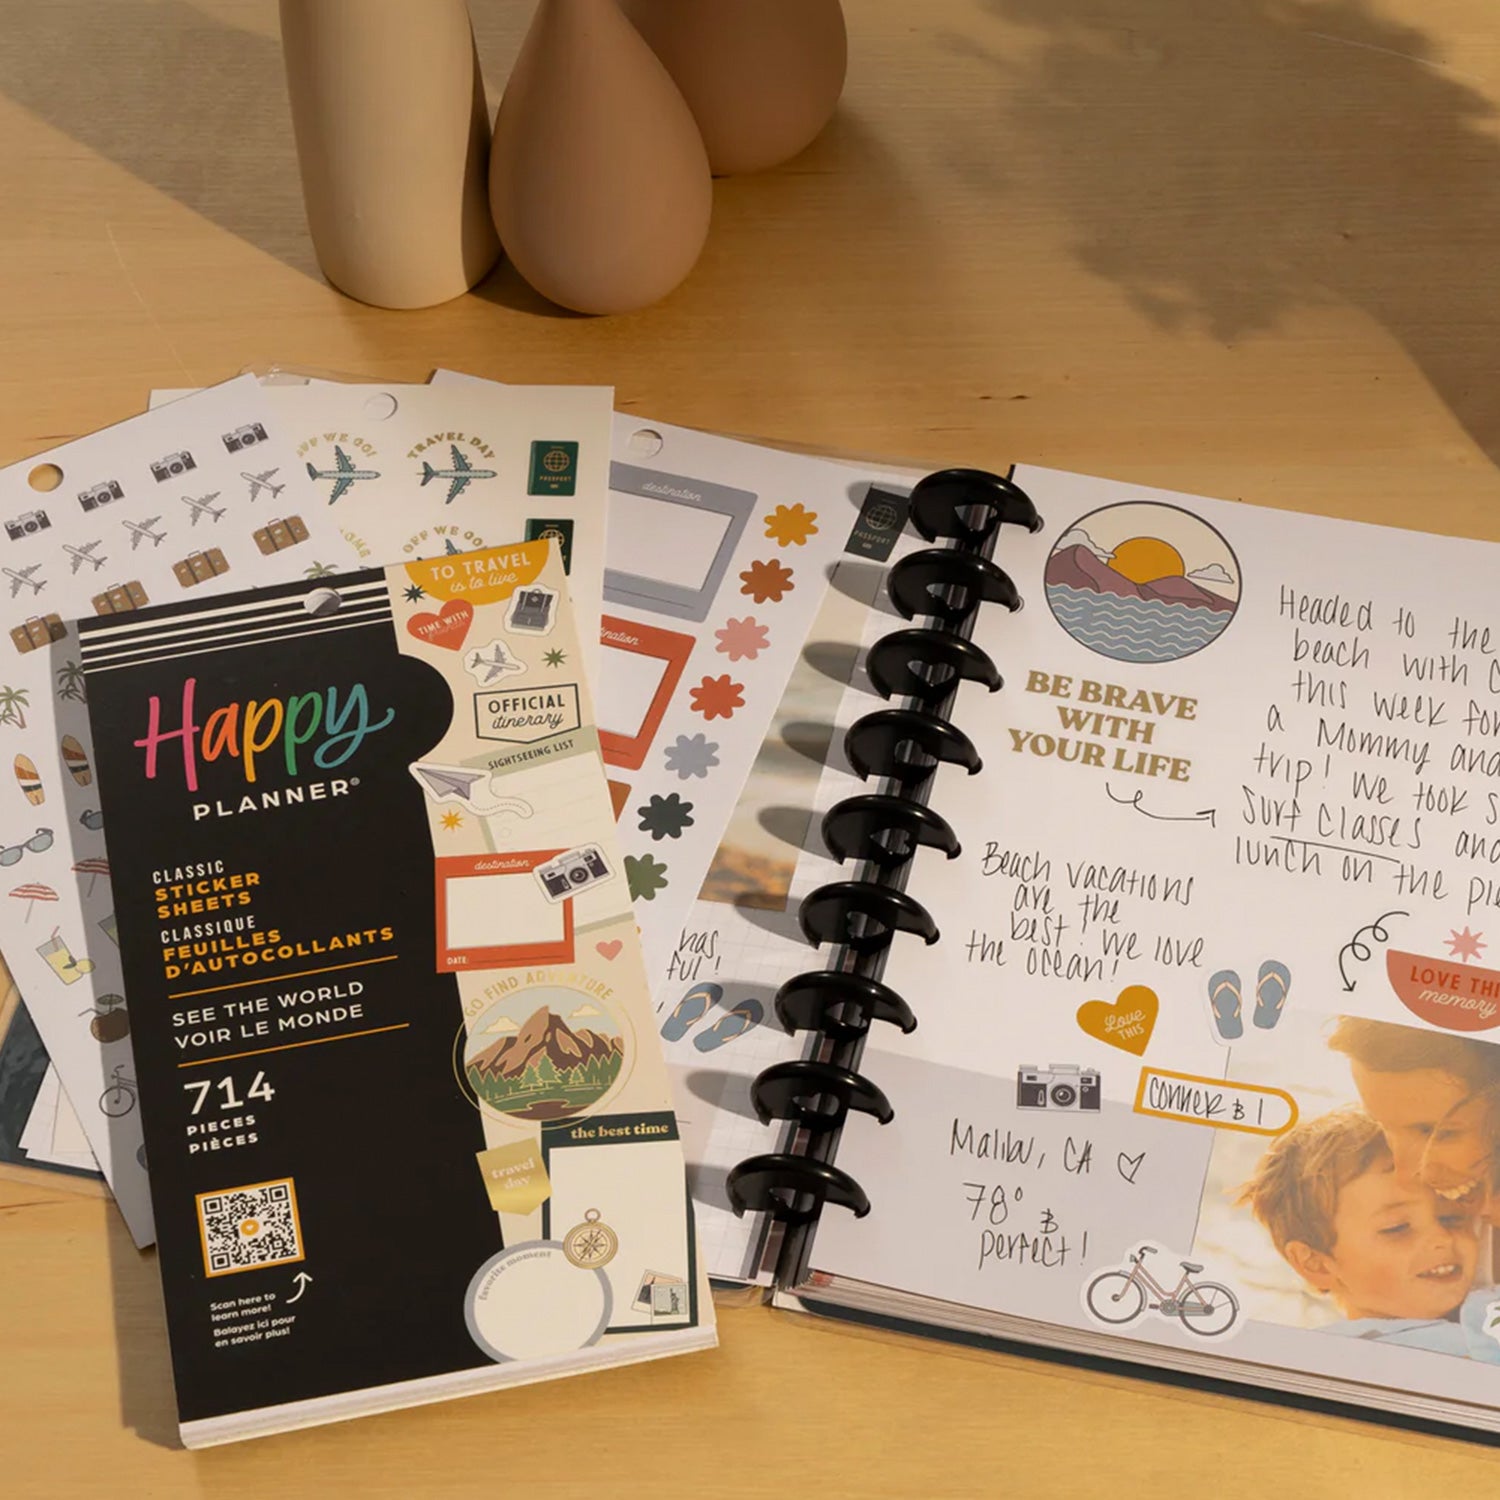 OFF WE GO!
TRAVEL DAY
PASSPORT
OFF WE GO!
destination
PASSPORT
destination
TO TRAVEL
is to live
TIME WITH
friends
OFFICIAL
itinerary
SIGHTSEEING LIST
destination:
DATE:
GO FIND ADVENTURE
the best time
travel
day
favorite moment
Happy
PLANNER®
CLASSIC
STICKER
SHEETS
CLASSIQUE
FEUILLES
D'AUTOCOLLANTS
SEE THE WORLD
VOIR LE MONDE
714
PIECES
PIÈCES
Scan here to
learn more!
Balayez ici pour
en savoir plus!
has
ful!
BE BRAVE
WITH
YOUR LIFE
Headed to the
beach with
this week for
a Mommy and
trip! We took
surf classes and
lunch on the
Beach vacations
are the
best! We love
the ocean!
Love
THIS
LOVE THIS
memory
CONNER & I
Malibu, CA ♡
78° &
perfect!